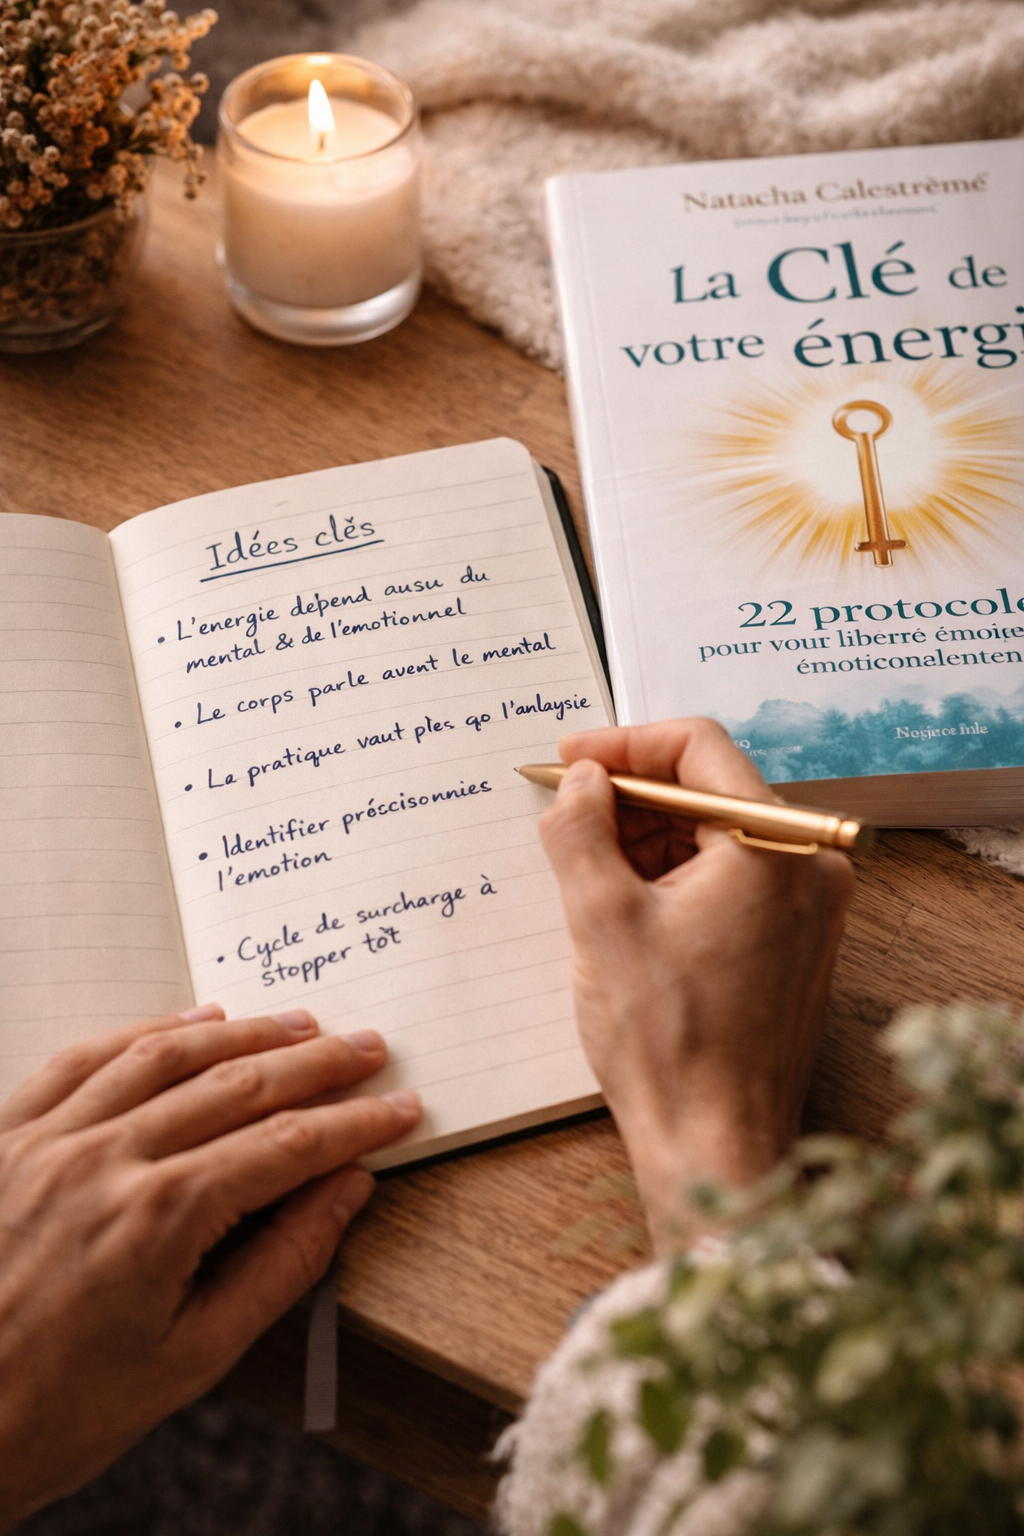 Natacha Calestrèmé
La Clé de
votre énergi
22 protocole
pour vour liberré émoie
émoticonalenten
Idées clěs
• L'energie depend ausu du
mental & de l'emotionnel
• Le corps parle avent le mental
• La pratique vaut ples qo l'anlaysie
• Identifier préscisonnies
l'emotion
• Cycle de surcharge à
stopper tôt